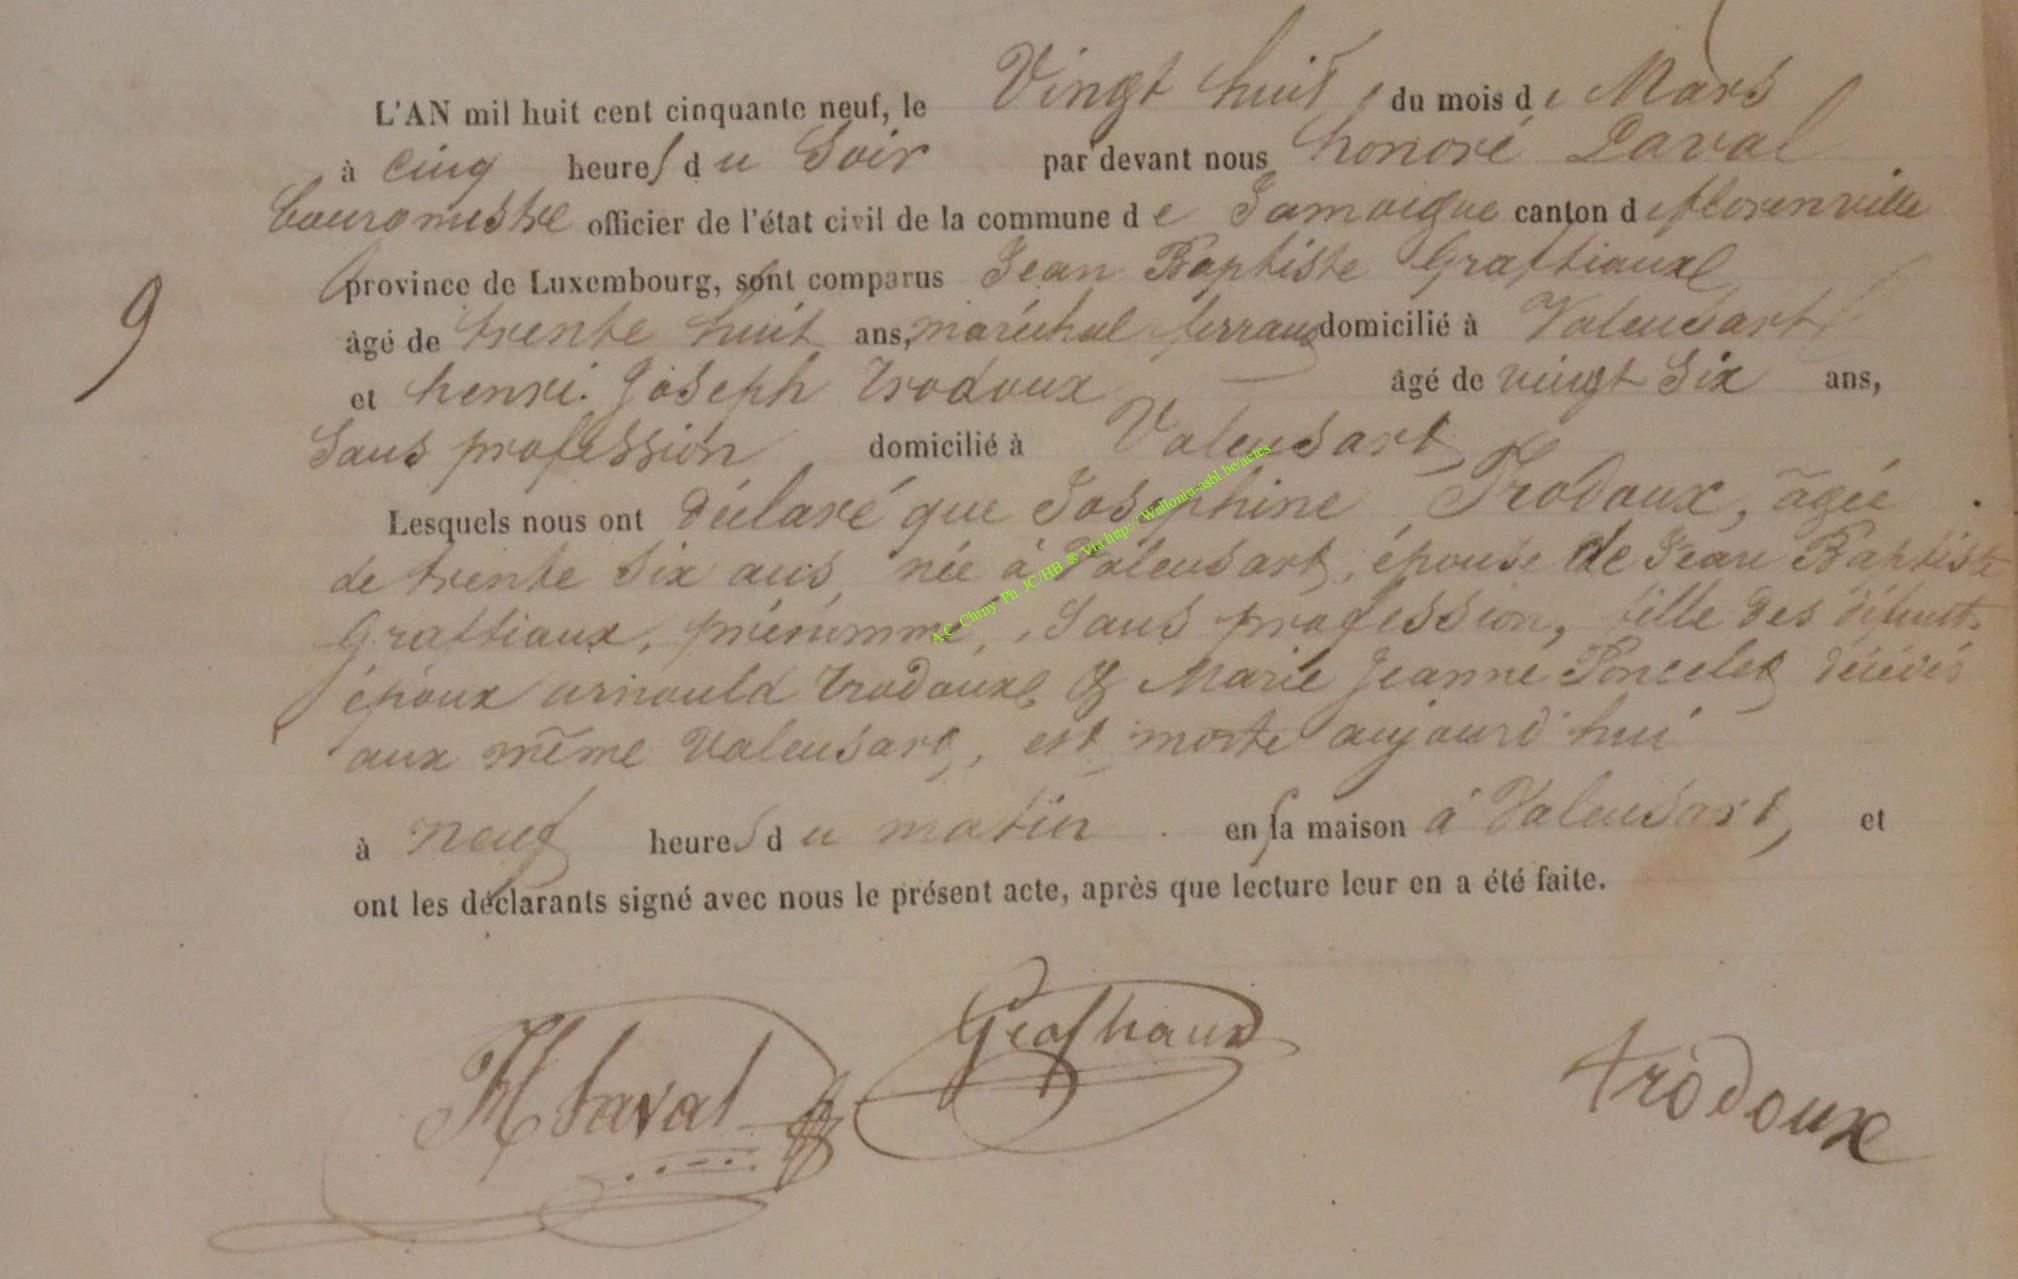 L'AN mil huit cent cinquante neuf, le Vingt huit, du mois de Mars
à cinq heures du Soir par devant nous honoré Laval
bourgmestre officier de l'état civil de la commune de Jamoigne canton de florenville
province de Luxembourg, sont comparus Jean Baptiste Graftiaux
âgé de trente huit ans, maréchal ferrand domicilié à Valensart
et henri Joseph Trodoux âgé de vingt Six ans,
Sans profession domicilié à Valensart
9
Lesquels nous ont déclaré que Josephine Trodoux, âgée
de trente Six ans, née à Valensart, épouse de Jean Baptiste
Graftiaux, prénommé, Sans profession, fille des défunts
époux arnould Trodoux & Marie Jeanne Poncelet décédés
aux même Valensart, est morte aujourd'hui
à neuf heures du matin en sa maison à Valensart, et
ont les déclarants signé avec nous le présent acte, après que lecture leur en a été faite.
A.C. Chiny Ph. JC/HB ® Via http://Wallonia-asbl.be/actes
H Laval Grafhaux trodoux